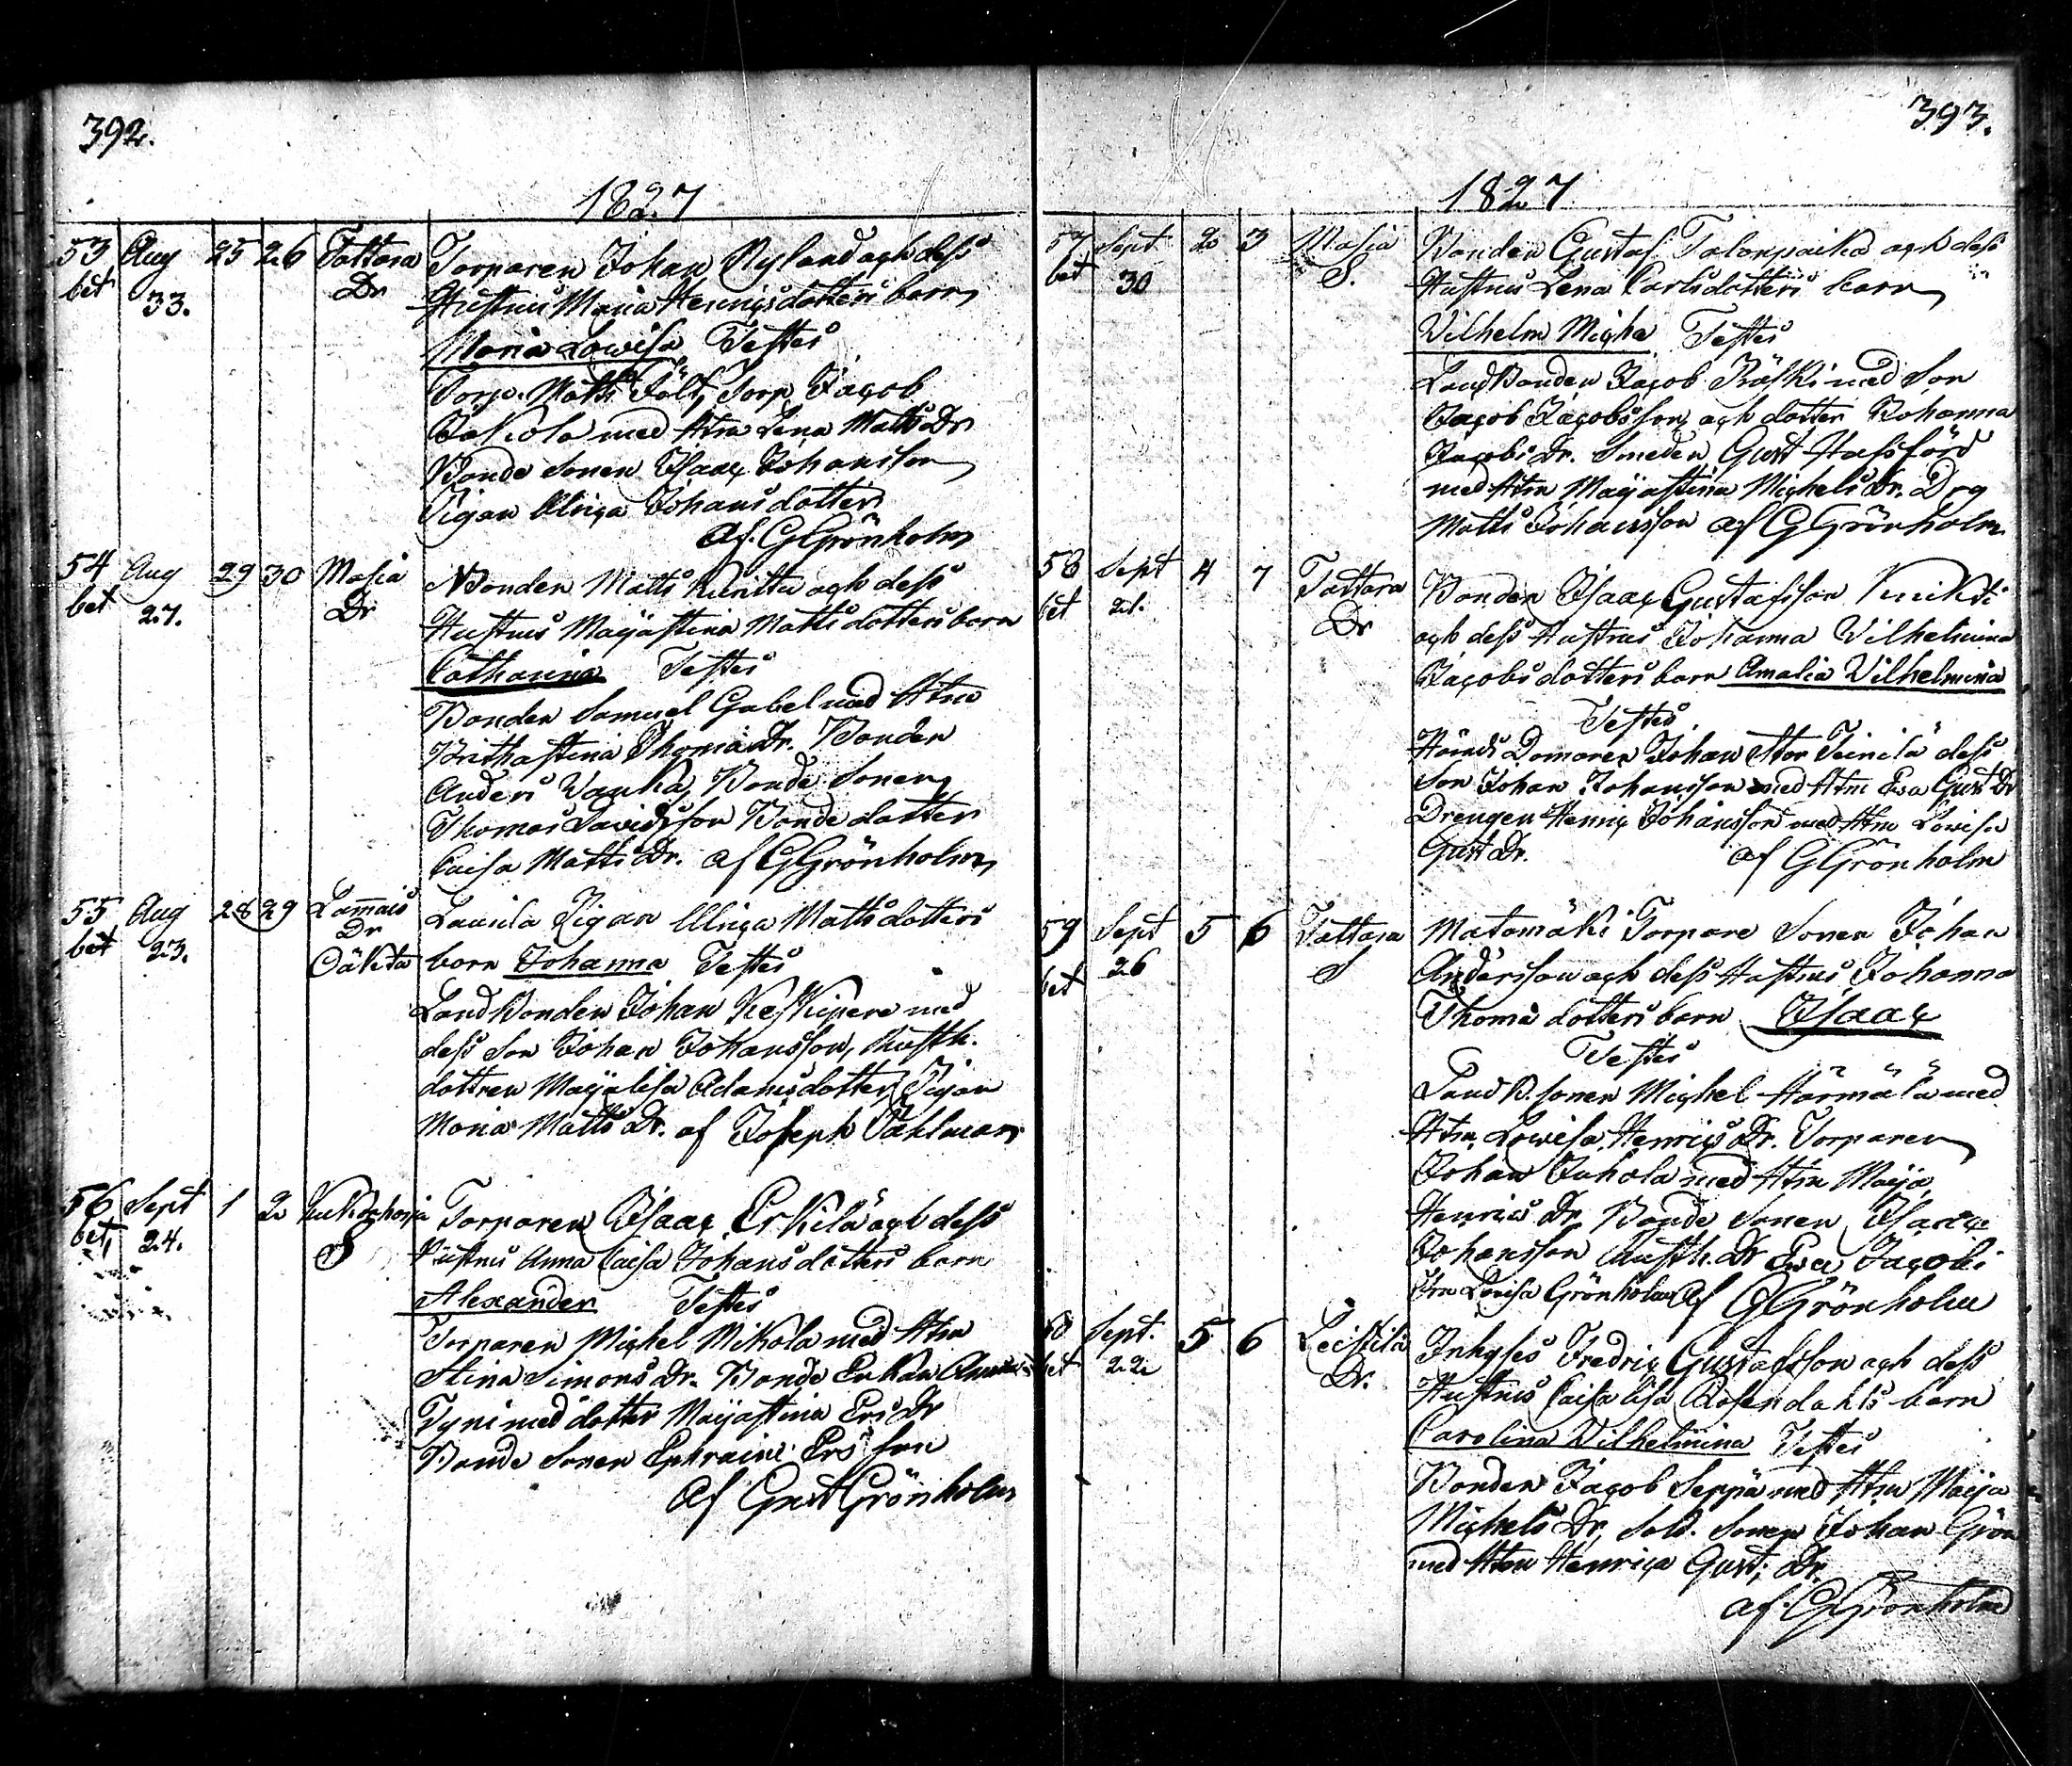 392.
1827
53 Aug 25 26 Tattara Torparen Johan Nyland och dess
bet 33. Dr Hustrus Maria Henricsdotters barn
Maria Lowisa Testes
Torp. Matts Fält, Torp. Jacob
med Hstru Lena Matts Dr
Bonde Sonen Isaac Johansson
Pigan Ulrica Johansdotter
af. G Grönholm
54 Aug 29 30 Masia Bonden Matts Kuritta och dess
bet 27. Dr Hustrus Majastina Mattsdotters barn
Catharina Testes
Bonden Samuel Gabel med Hstru
Brithastina Thomæ Dr. Bonden
Anders Bonde Sonen
Thomas Davidsson Bonde dotter
Caisa Matts Dr. af G Grönholm
55 Aug 28 29 Lammais Lauvila Pigan Ulrica Mattsdotters
bet 23. Dr
Oäkta barn Johanna Testes
LandBonden Johan Keskipere med
dess Son Johan Johansson, Rusth.
dottren Majalisa Adamsdotter, Pigan
Maria Matts Dr. af Joseph Pahlman
56 Sept 1 2 Torparen Isaac Erkilä och dess
bet 24. S Hustrus Anna Caisa Johansdotters barn
Alexander Testes
Torparen Michel Mikola med Hstru
Stina Simons Dr. Bonde Enkan
Tyni med dotter Majastina Ers Dr
Bonde Sonen Ephraim Ersson
af Gust Grönholm
393.
1827
57 Sept 2 3 Masia Bonden Gustaf Talonpoika och dess
bet 30 S. Hustrus Lena Carlsdotters barn
Vilhelm Micha Testes
LandBonden Jacob Präski med Son
Jacob Jacobsson och dotter Johanna
Jacobs Dr. Smeden Gust Hasförs
med Hstru Majastina Michels Dr. Drg
Matts Johansson af G Grönholm
58 Sept 4 7 Tattara Bonden Isaac Gustafsson Knihti
bet 21. Dr och dess Hustrus Johanna Vilhelmina
Jacobsdotters barn Amalia Vilhelmina
Testes
Härads Domaren Johan Stor Teinilä dess
Son Johan Johansson med Hstru Eva Gust Dr
Drengen Henric Johansson med Hstru Lowisa
Gust Dr. af G Grönholm
59 Sept 5 6 Tattara Matomäki Torpare Sonen Johan
bet 26 S Andersson och dess Hustrus Johanna
Thomæ dotters barn Isaac
Testes
Land B. Sonen Michel Härmälä med
Hstru Lowisa Henrics Dr. Torparen
Johan Juhola med Hstru Maija
Henrics Dr Bonde Sonen Isaac
Johansson Rusth. Dr Eva Jacobs
Lovisa Grönholm af G Grönholm
60 Sept. 5 6 Leistilä Inhyses Fredric Gustafsson och dess
bet 22 Dr. Hustrus Caisa Lisa Rosendahls barn
Carolina Vilhelmina Testes
Bonden Jacob Seppä med Hstru Maija
Michels Dr, Sold. Sonen Johan Grön
med Hstru Henrica Gust. Dr.
af. G Grönholm